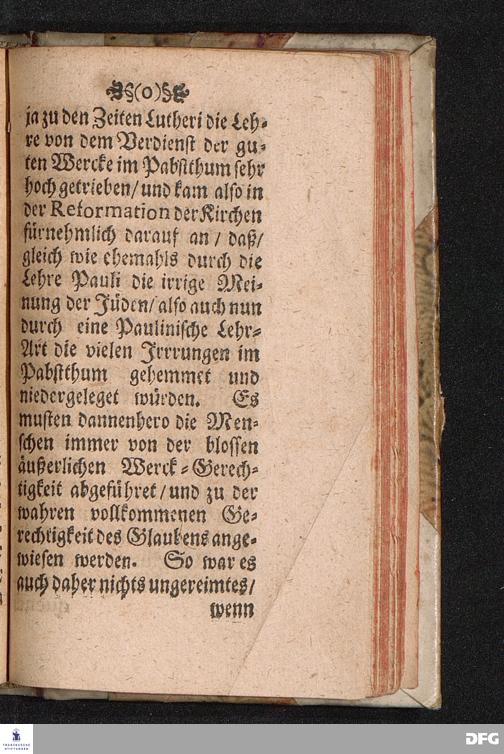 (o)
ja zu den Zeiten Lutheri die Leh⸗
re von dem Verdienst der gu⸗
ten Wercke im Pabstthum sehr
hoch getrieben/ und kam also in
der Reformation der Kirchen
fürnehmlich darauf an / daß/
gleich wie ehemahls durch die
Lehre Pauli die irrige Mei⸗
nung der Jüden/ also auch nun
durch eine Paulinische Lehr⸗
Art die vielen Irrrungen im
Pabstthum gehemmet und
niedergeleget würden. Es
musten dannenhero die Men⸗
schen immer von der blossen
äußerlichen Werck⸗Gerech⸗
tigkeit abgeführet/ und zu der
wahren vollkommenen Ge⸗
rechtigkeit des Glaubens ange⸗
wiesen werden. So war es
auch daher nichts ungereimtes/
wenn
FRANCKESCHE
STIFTUNGEN
DFG